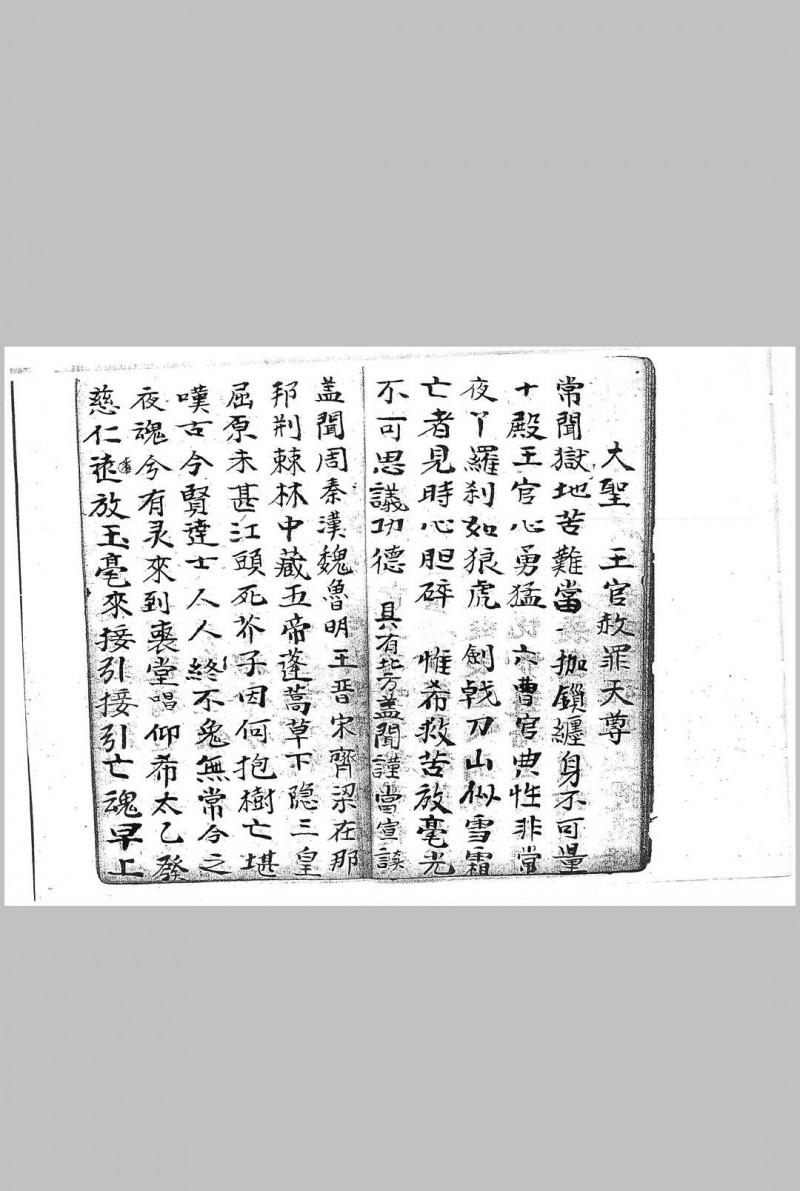 大聖　王官赦罪天尊
常聞獄地苦難當　枷鎖纏身不可量
十殿王官心勇猛　六曹官典性非常
夜丫羅刹如狼虎　劍戟刀山似雪霜
亡者見時心胆碎　惟希救苦放毫光
不可思議功德　具有北方盖聞謹當宣談
盖聞周秦漢魏魯明王晋宋齊梁在那
邦荆棘林中藏五帝蓬蒿草下隐三皇
屈原未甚江頭死芥子因何抱樹亡堪
嘆古今賢達士人人終不免無常今之
夜魂兮有灵來到喪堂唱仰希太乙發
慈仁遠放玉毫來接引接引亡魂早上